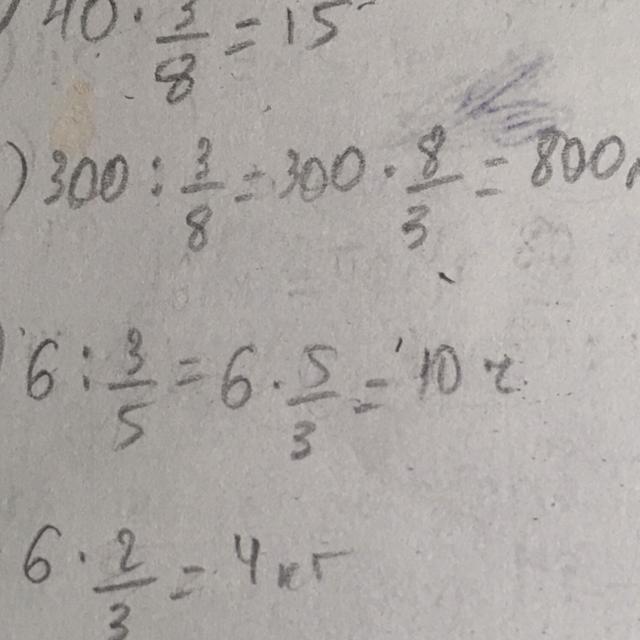 40 · 3/8 = 15
) 300 : 3/8 = 300 · 8/3 = 800
) 6 : 3/5 = 6 · 5/3 = 10 г
6 · 2/3 = 4